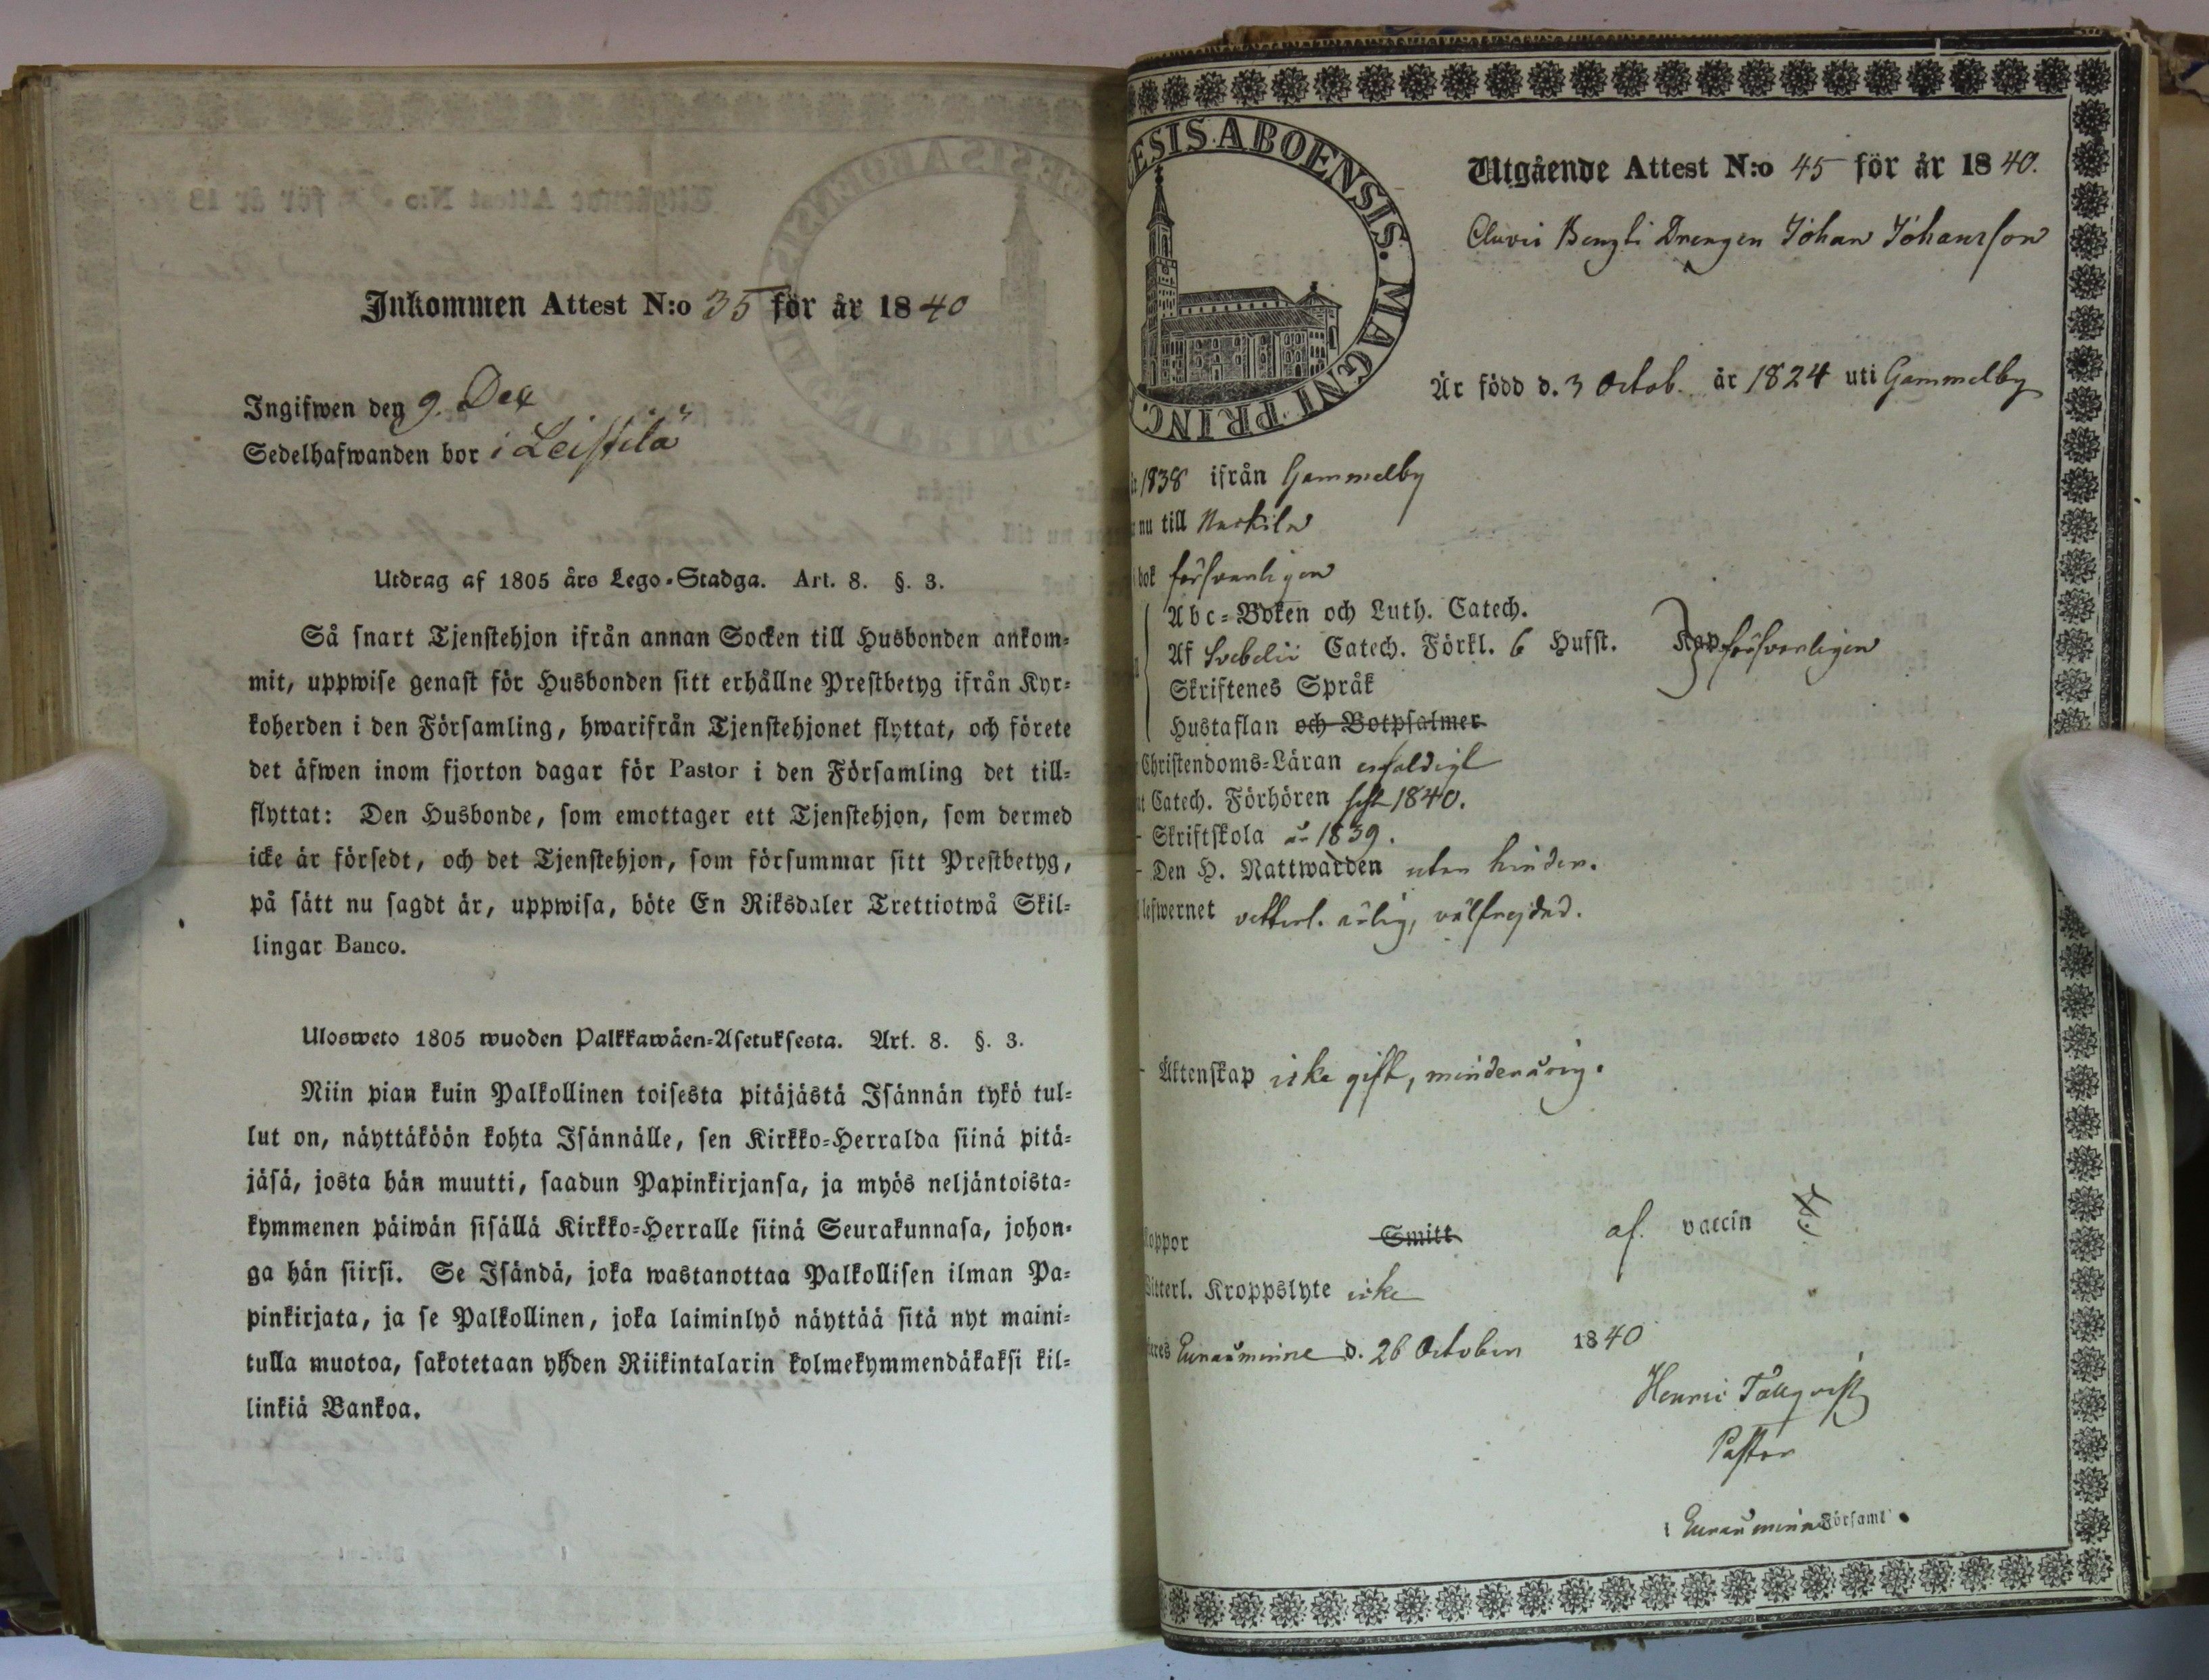 Inkommen Attest N:o 35 för år 1840
Ingifwen den 9. Dec
Sedelhafwanden bor i Leistilä
Utdrag af 1805 års Lego-Stadga. Art. 8. §. 3.
Så snart Tjenstehjon ifrån annan Socken till Husbonden ankom-
mit, uppwise genast för Husbonden sitt erhållne Prestbetyg ifrån Kyr-
koherden i den Församling, hwarifrån Tjenstehjonet flyttat, och förete
det äfwen inom fjorton dagar för Pastor i den Församling det till-
flyttat: Den Husbonde, som emottager ett Tjenstehjon, som dermed
icke är försedt, och det Tjenstehjon, som försummar sitt Prestbetyg,
på sätt nu sagdt är, uppwisa, böte En Riksdaler Trettiotwå Skil-
lingar Banco.
Ulosweto 1805 wuoden Palkkawäen-Asetuksesta. Art. 8. §. 3.
Niin pian kuin Palkollinen toisesta pitäjästä Isännän tykö tul-
lut on, näyttäköön kohta Isännälle, sen Kirkko-Herralda siinä pitä-
jäsä, josta hän muutti, saadun Papinkirjansa, ja myös neljäntoista-
kymmenen päiwän sisällä Kirkko-Herralle siinä Seurakunnasa, johon-
ga hän siirsi. Se Isändä, joka wastanottaa Palkollisen ilman Pa-
pinkirjata, ja se Palkollinen, joka laiminlyö näyttää sitä nyt maini-
tulla muotoa, sakotetaan yhden Riikintalarin kolmekymmendäkaksi kil-
linkiä Bankoa.
ESIS ABOENSIS. MAGNI PRINC.
Utgående Attest N:o 45 för år 1840.
Drengen Johan Johansson
Är född d. 3 Octob. år 1824 uti Gammelby
1838 ifrån Gammelby
nu till Nackila
bok försvarligen
Abc-Boken och Luth. Catech.
Af Svebelii Catech. Förkl. 6 Hufst. Kap. försvarligen
Skriftenes Språk
Hustaflan och Botpsalmer
Christendoms-Läran enfaldigt
Catech. Förhören sist 1840.
Skriftskola år 1839.
Den H. Nattwarden utan hinder.
lefwernet vetterl. ärlig, välfrejdad.
Äktenskap icke gift, minderårig.
koppor Smitt af. vaccin
Witterl. Kroppslyte icke
Euraåminne d. 26 October 1840
Henric Tallqvist
Pastor
i Euraåminne Församl.